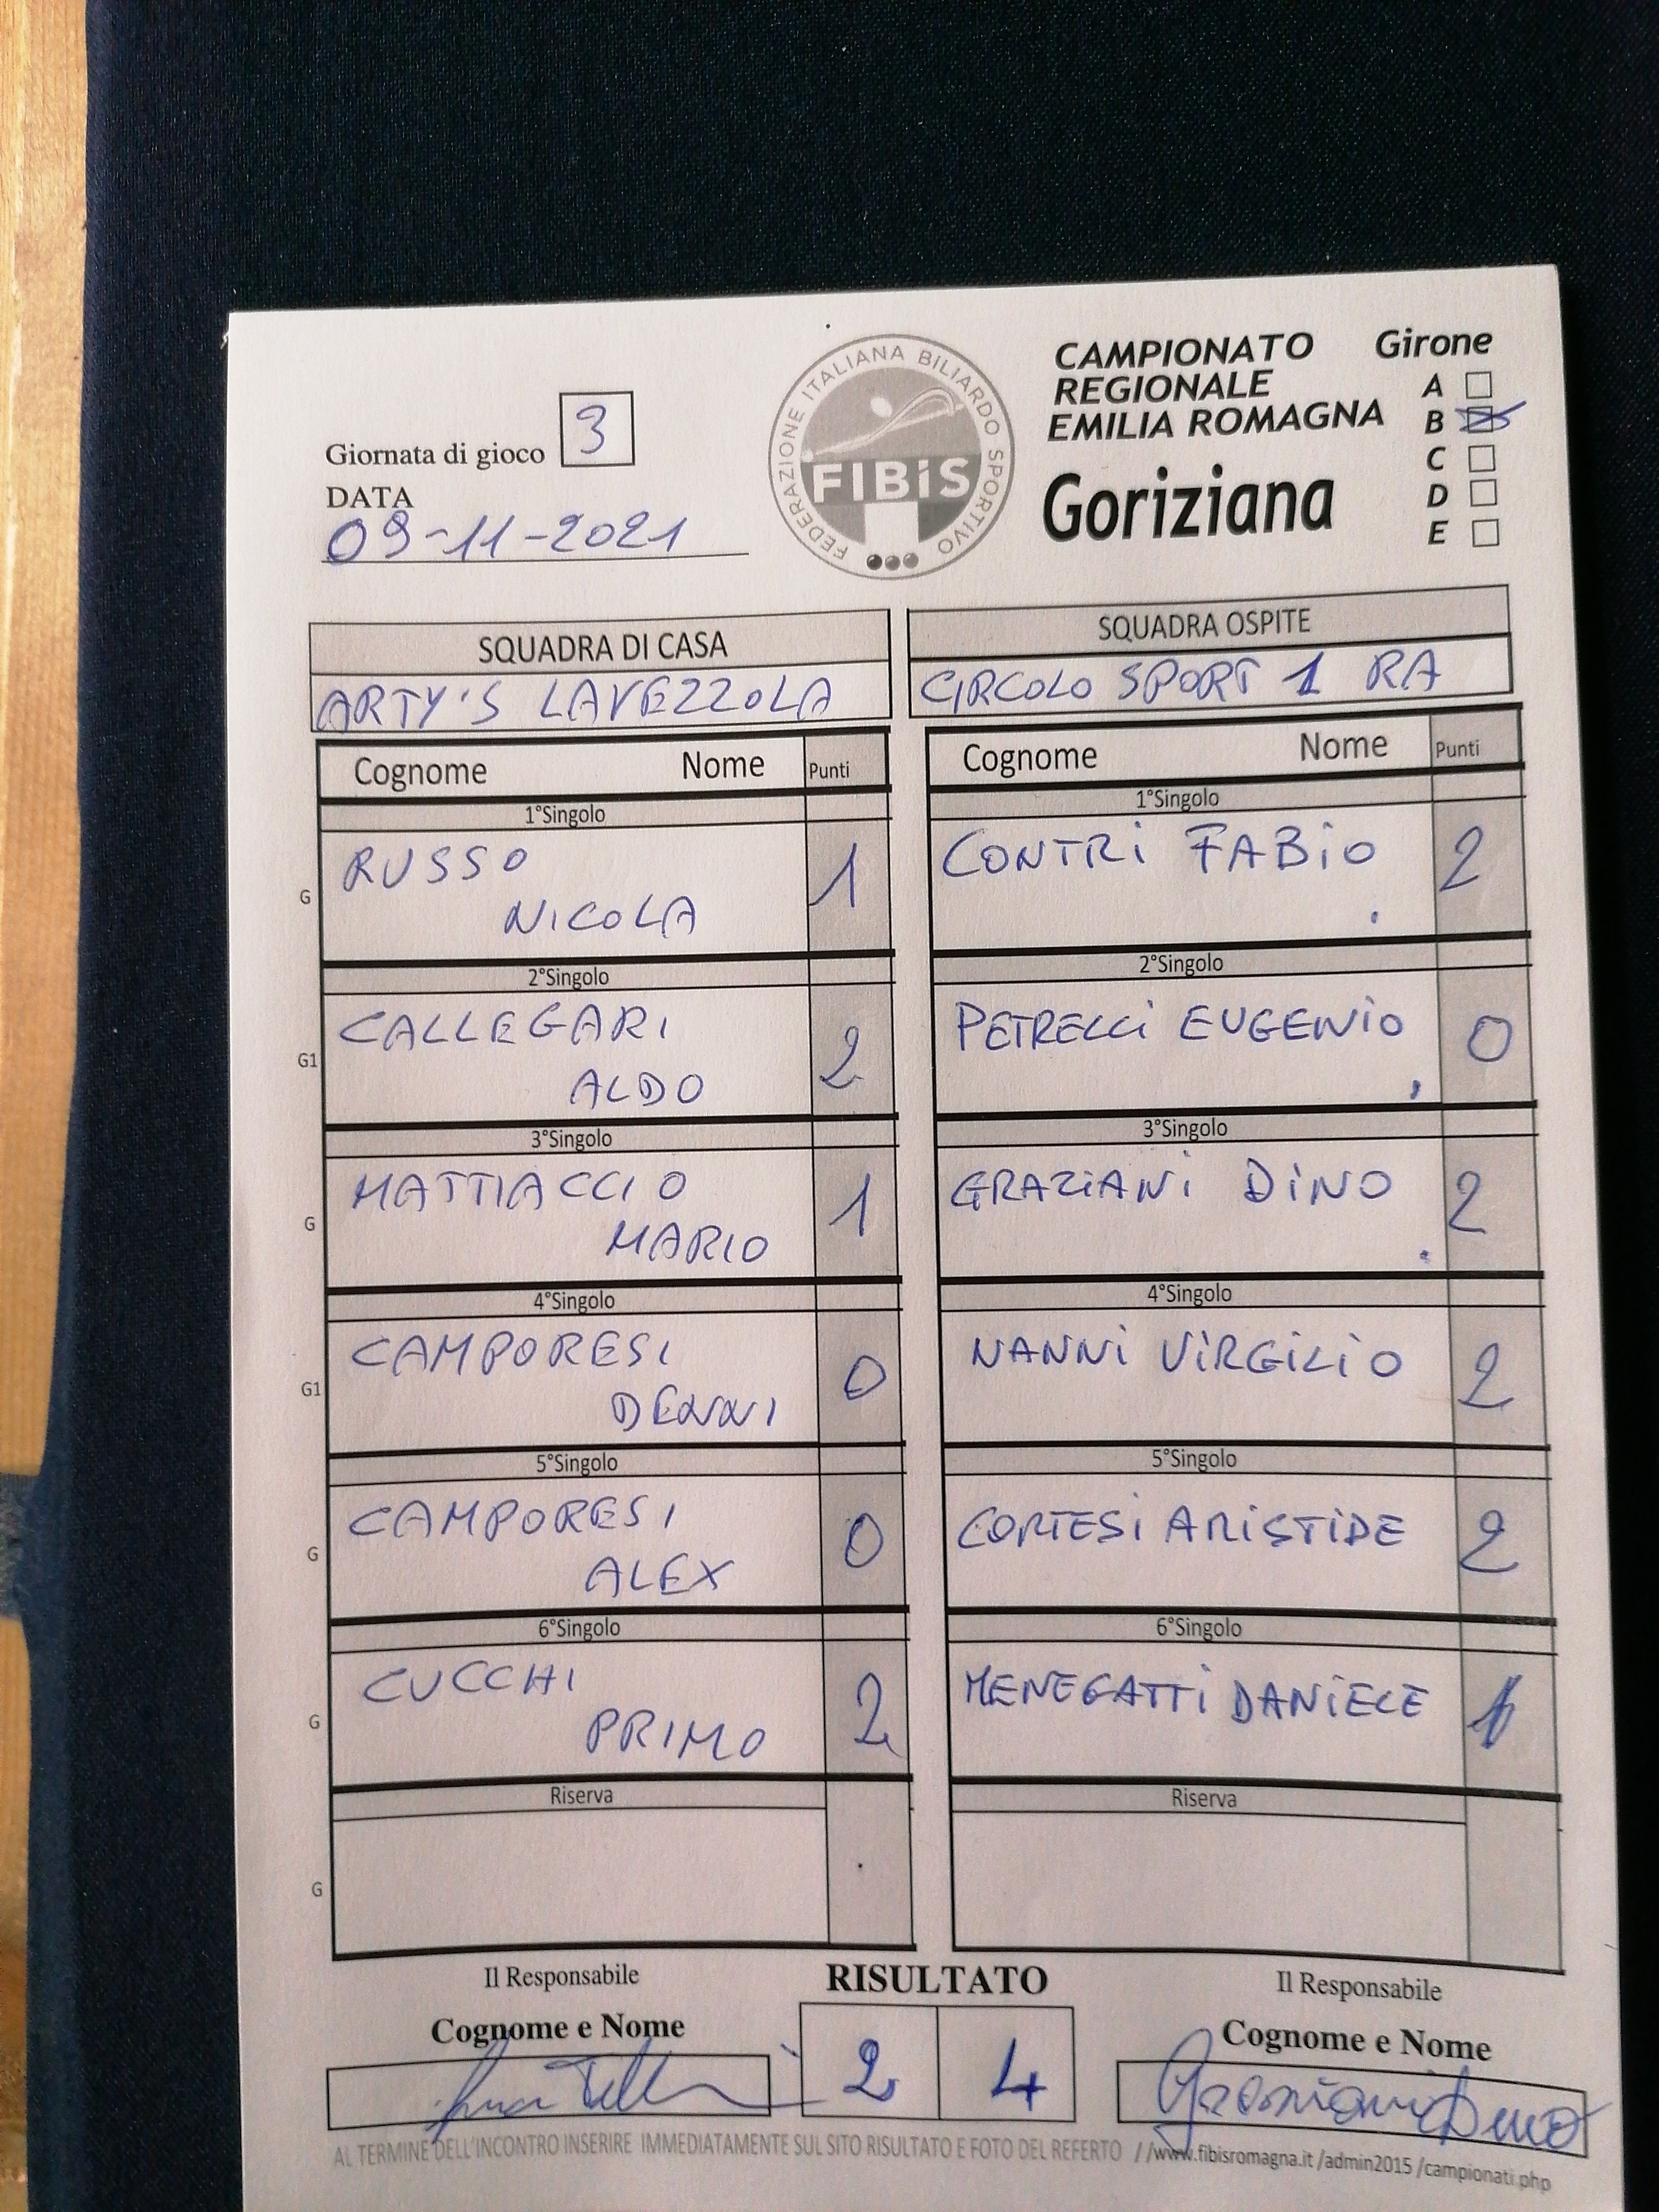 Giornata di gioco 3
DATA
09-11-2021
FEDERAZIONE ITALIANA BILIARDO SPORTIVO
FIBiS
CAMPIONATO
REGIONALE
EMILIA ROMAGNA
Goriziana
Girone
A
B
C
D
E
SQUADRA DI CASA
ARTY'S LAVEZZOLA
Cognome Nome Punti
1°Singolo
G
RUSSO
NICOLA 1
2°Singolo
G1
CALLEGARI
ALDO 2
3°Singolo
G
MATTIACCIO
MARIO 1
4°Singolo
G1
CAMPORESI
DENNI 0
5°Singolo
G
CAMPORESI
ALEX 0
6°Singolo
G
CUCCHI
PRIMO 2
Riserva
G
SQUADRA OSPITE
CIRCOLO SPORT 1 RA
Cognome Nome Punti
1°Singolo
CONTRi FABiO 2
2°Singolo
PETRELLi EUGENiO 0
3°Singolo
GRAZiANi DiNO 2
4°Singolo
NANNi ViRGiLiO 2
5°Singolo
CORTESi ARiSTiDE 2
6°Singolo
MENEGATTi DANiELE 1
Riserva
Il Responsabile
Cognome e Nome
RISULTATO
2 4
Il Responsabile
Cognome e Nome
Graziani Dino
AL TERMINE DELL'INCONTRO INSERIRE IMMEDIATAMENTE SUL SITO RISULTATO E FOTO DEL REFERTO //www.fibisromagna.it /admin2015 /campionati.php